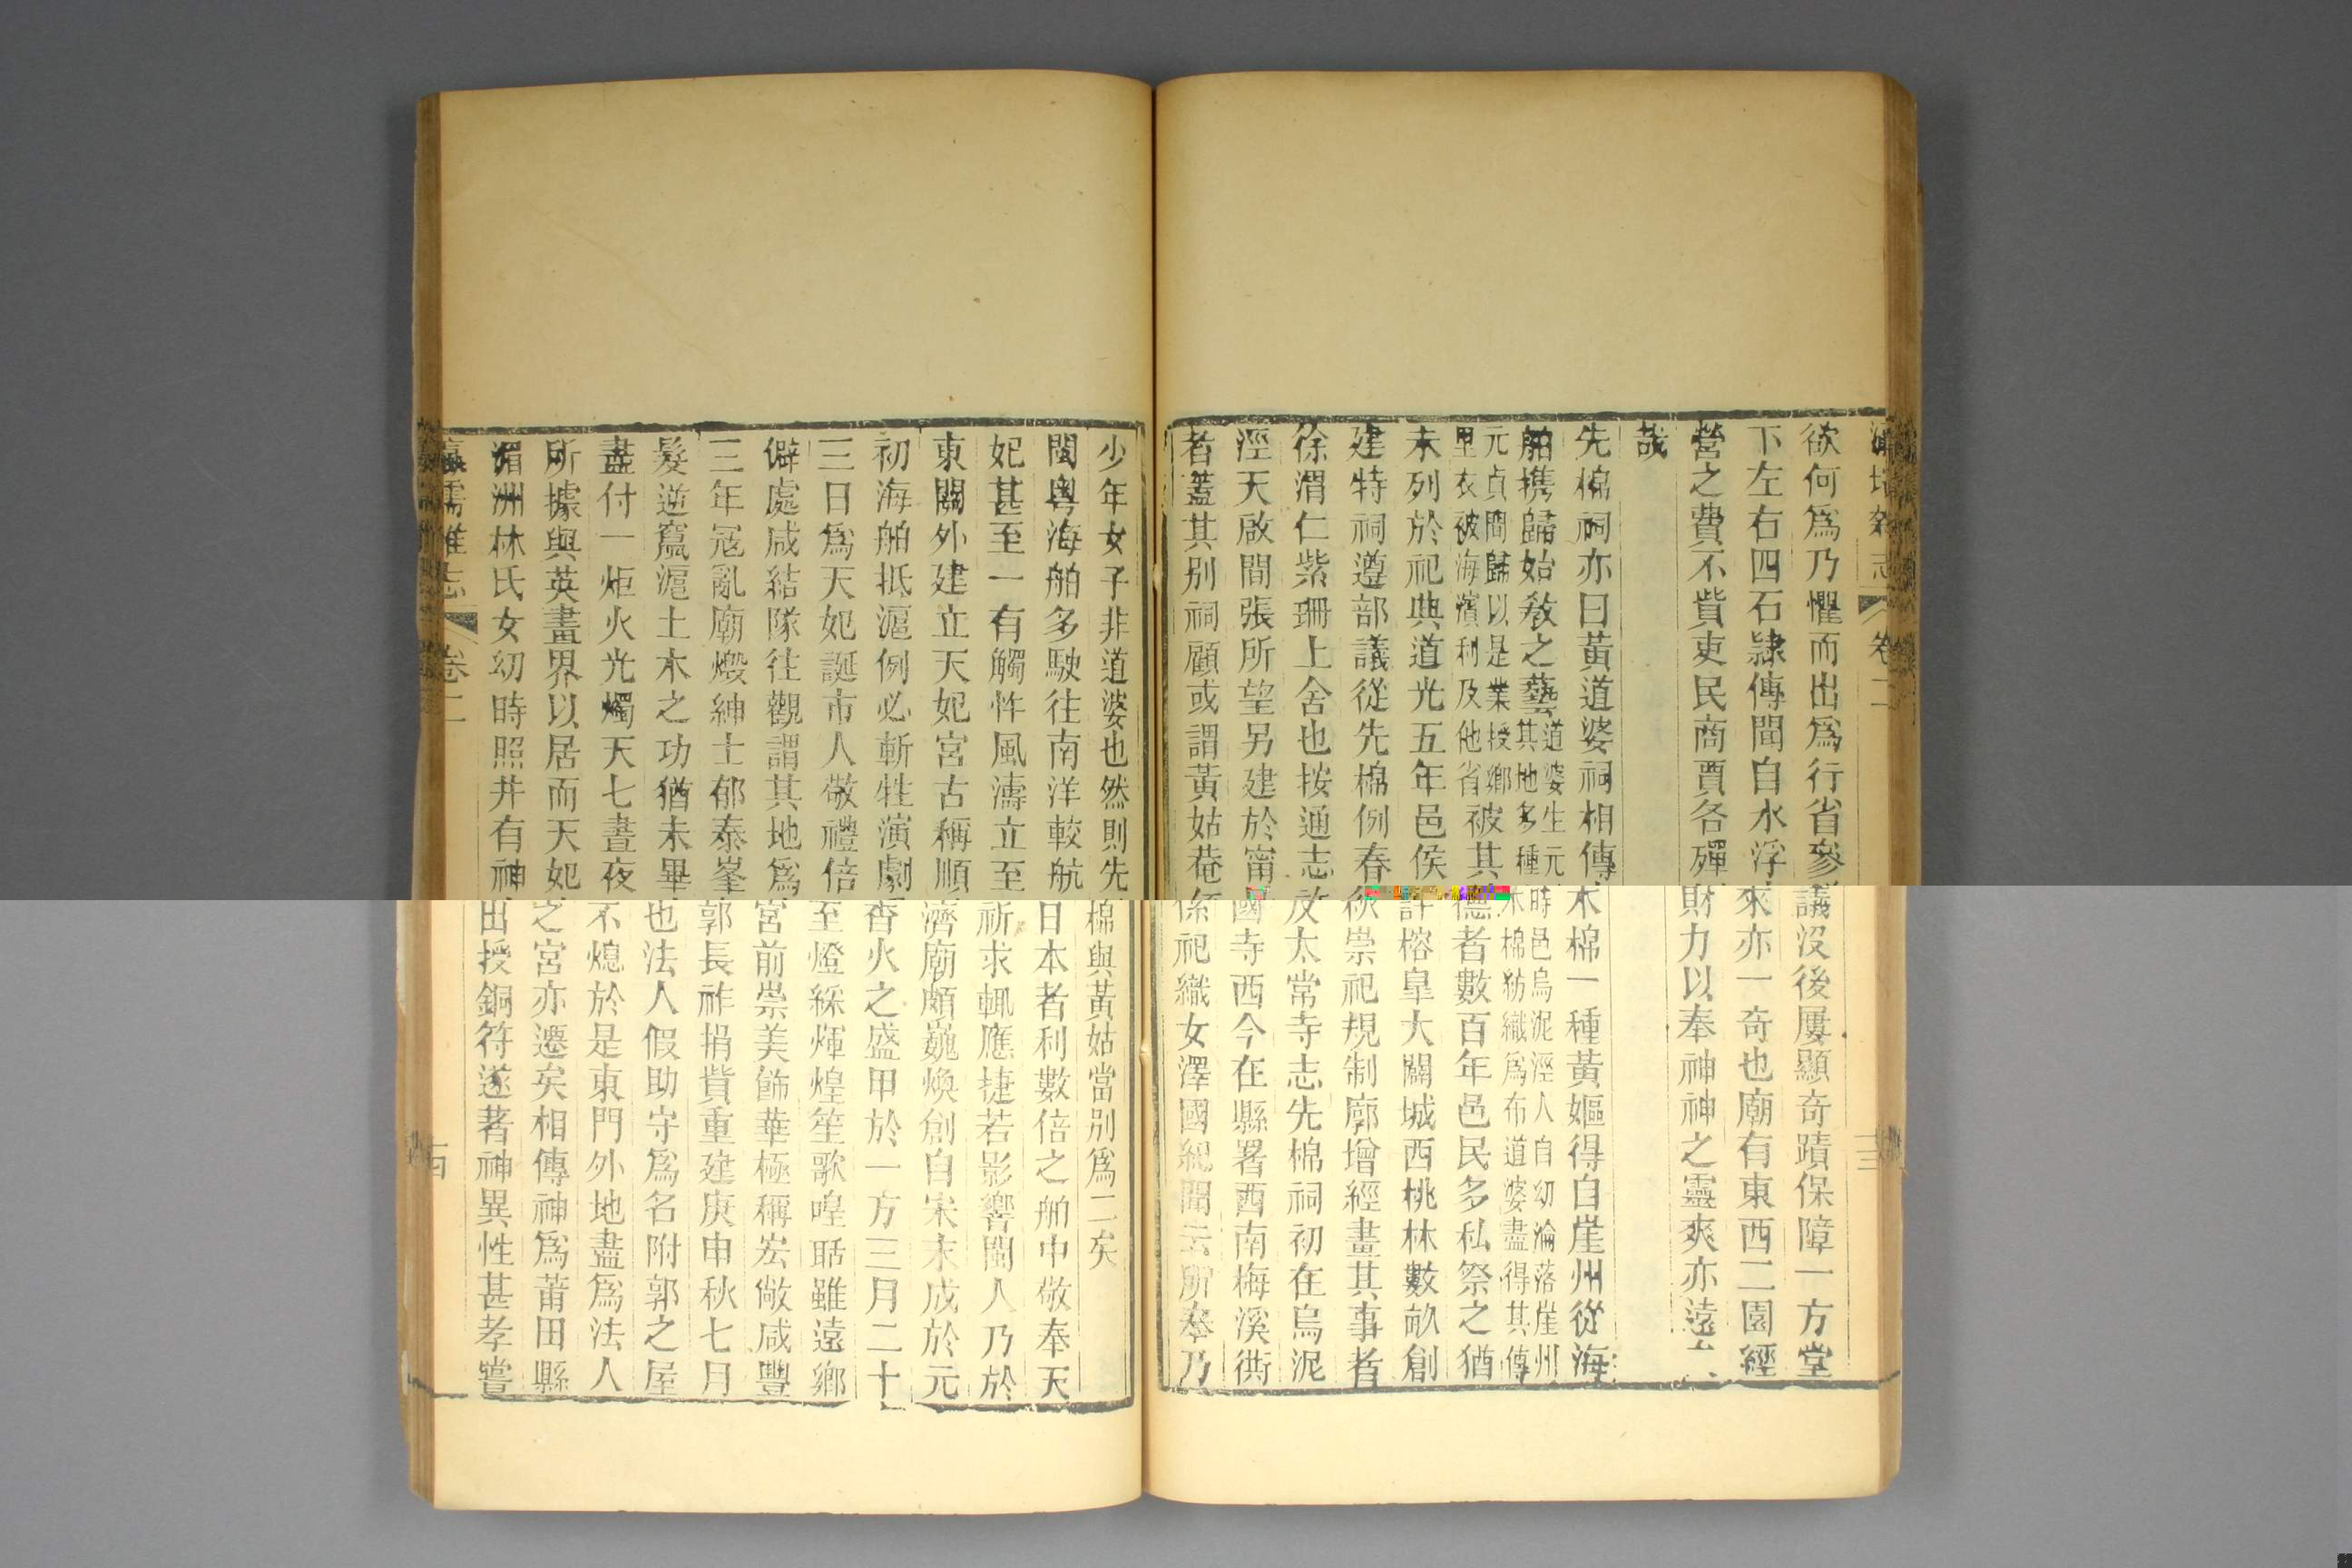 欲何爲乃懼而出爲行省參議没後屢顯奇蹟保障一方堂
下左右四石隷傳聞自水浮來亦一奇也廟有東西二園經
營之費不貲吏民商賈各殫財力以奉神神之靈爽亦遠
哉
先棉祠亦曰黃道婆祠相傳木棉一種黃嫗得自崖州從海
舶携歸始敎之藝道婆生元時邑烏泥涇人自幼淪落崖州
其地多種木棉紡織爲布道婆盡得其傳
元貞間歸以是業授鄉
里衣被海濱利及他省被其德者數百年邑民多私祭之猶
未列於祀典道光五年邑侯許榕皐大關城西桃林數畝創
建特祠遵部議從先棉例春秋崇祀規制廓增經畫其事者
徐渭仁紫珊上舍也按通志及太常寺志先棉祠初在烏泥
涇天啟間張所望另建於甯國寺西今在縣署西南梅溪衖
者蓋其别祠顧或謂黃姑菴係祀織女澤國紀聞云所奉乃
少年女子非道婆也然則先棉與黃姑當别爲二矣
閩粤海舶多駛往南洋較航日本者利數倍之舶中敬奉天
妃甚至一有觸忤風濤立至祈求輒應捷若影響閩人乃於
東關外建立天妃宮古稱順濟廟頗巍煥創自宋末成於元
初海舶抵滬例必斬牲演劇香火之盛甲於一方三月二十
三日爲天妃誕市人敬禮倍至燈綵煇煌笙歌喤聒雖遠鄉
僻處咸結隊往觀謂其地爲宮前崇美飾華極稱宏敞咸豐
三年冦亂廟燬紳士郁泰峯郭長祚捐貲重建庚申秋七月
髮逆竄滬土木之功猶未畢也法人假助守爲名附郭之屋
盡付一炬火光燭天七晝夜不熄於是東門外地盡爲法人
所據與英畫界以居而天妃之宮亦遷矣相傳神爲莆田縣
湄洲林氏女幼時照井有神出授銅符遂著神異性甚孝嘗
瀛壖雜志
卷二